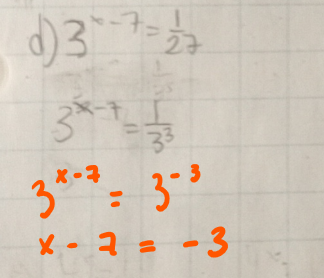 d) 3^{x-7} = \frac{1}{27}
3^{x-7} = \frac{1}{3^3}
3^{x-7} = 3^{-3}
x - 7 = -3